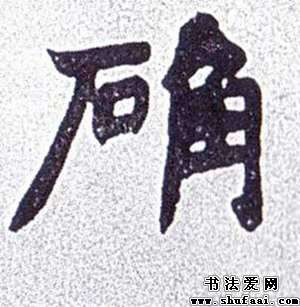 确
书法爱网
www.shufaai.com